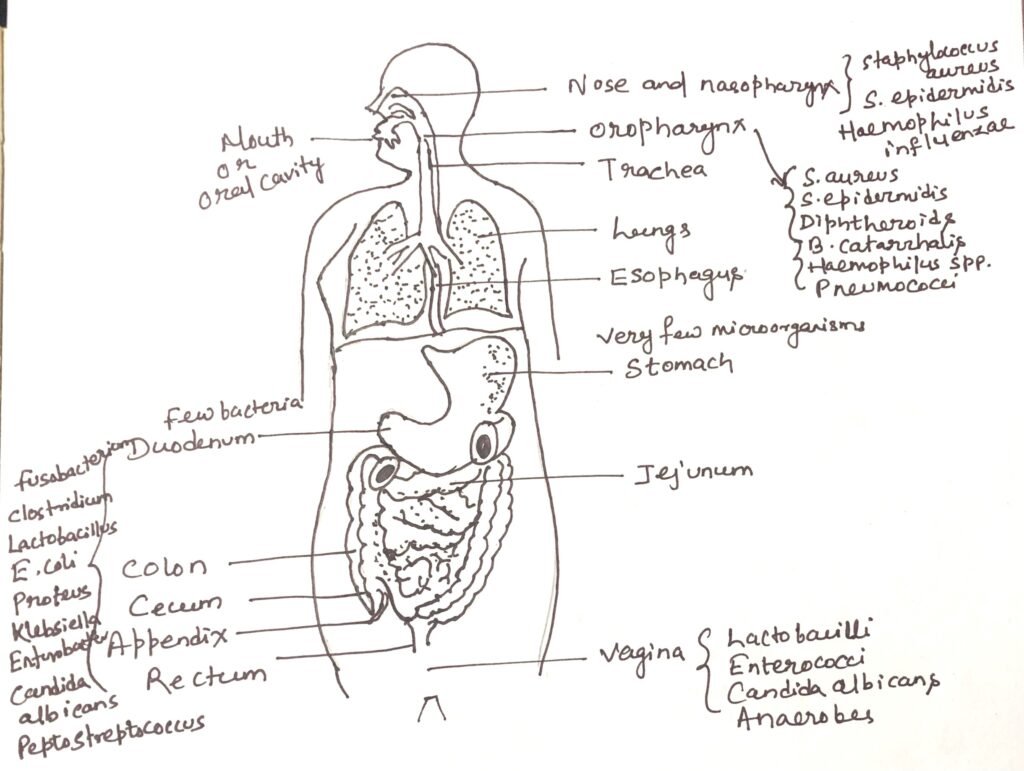 Nose and nasopharynx
Staphylococcus
aureus
S. epidermidis
Haemophilus
influenzae
Mouth
or
oral cavity
oropharynx
S. aureus
S. epidermidis
Diphtheroids
B. catarrhalis
Haemophilus spp.
Pneumococci
Trachea
Lungs
Esophagus
Very few microorganisms
Stomach
few bacteria
Duodenum
Jejunum
fusobacterium
clostridium
Lactobacillus
E. coli
Proteus
Klebsiella
Enterobacter
Candida
albicans
Peptostreptococcus
Colon
Cecum
Appendix
Rectum
Vagina
Lactobacilli
Enterococci
Candida albicans
Anaerobes